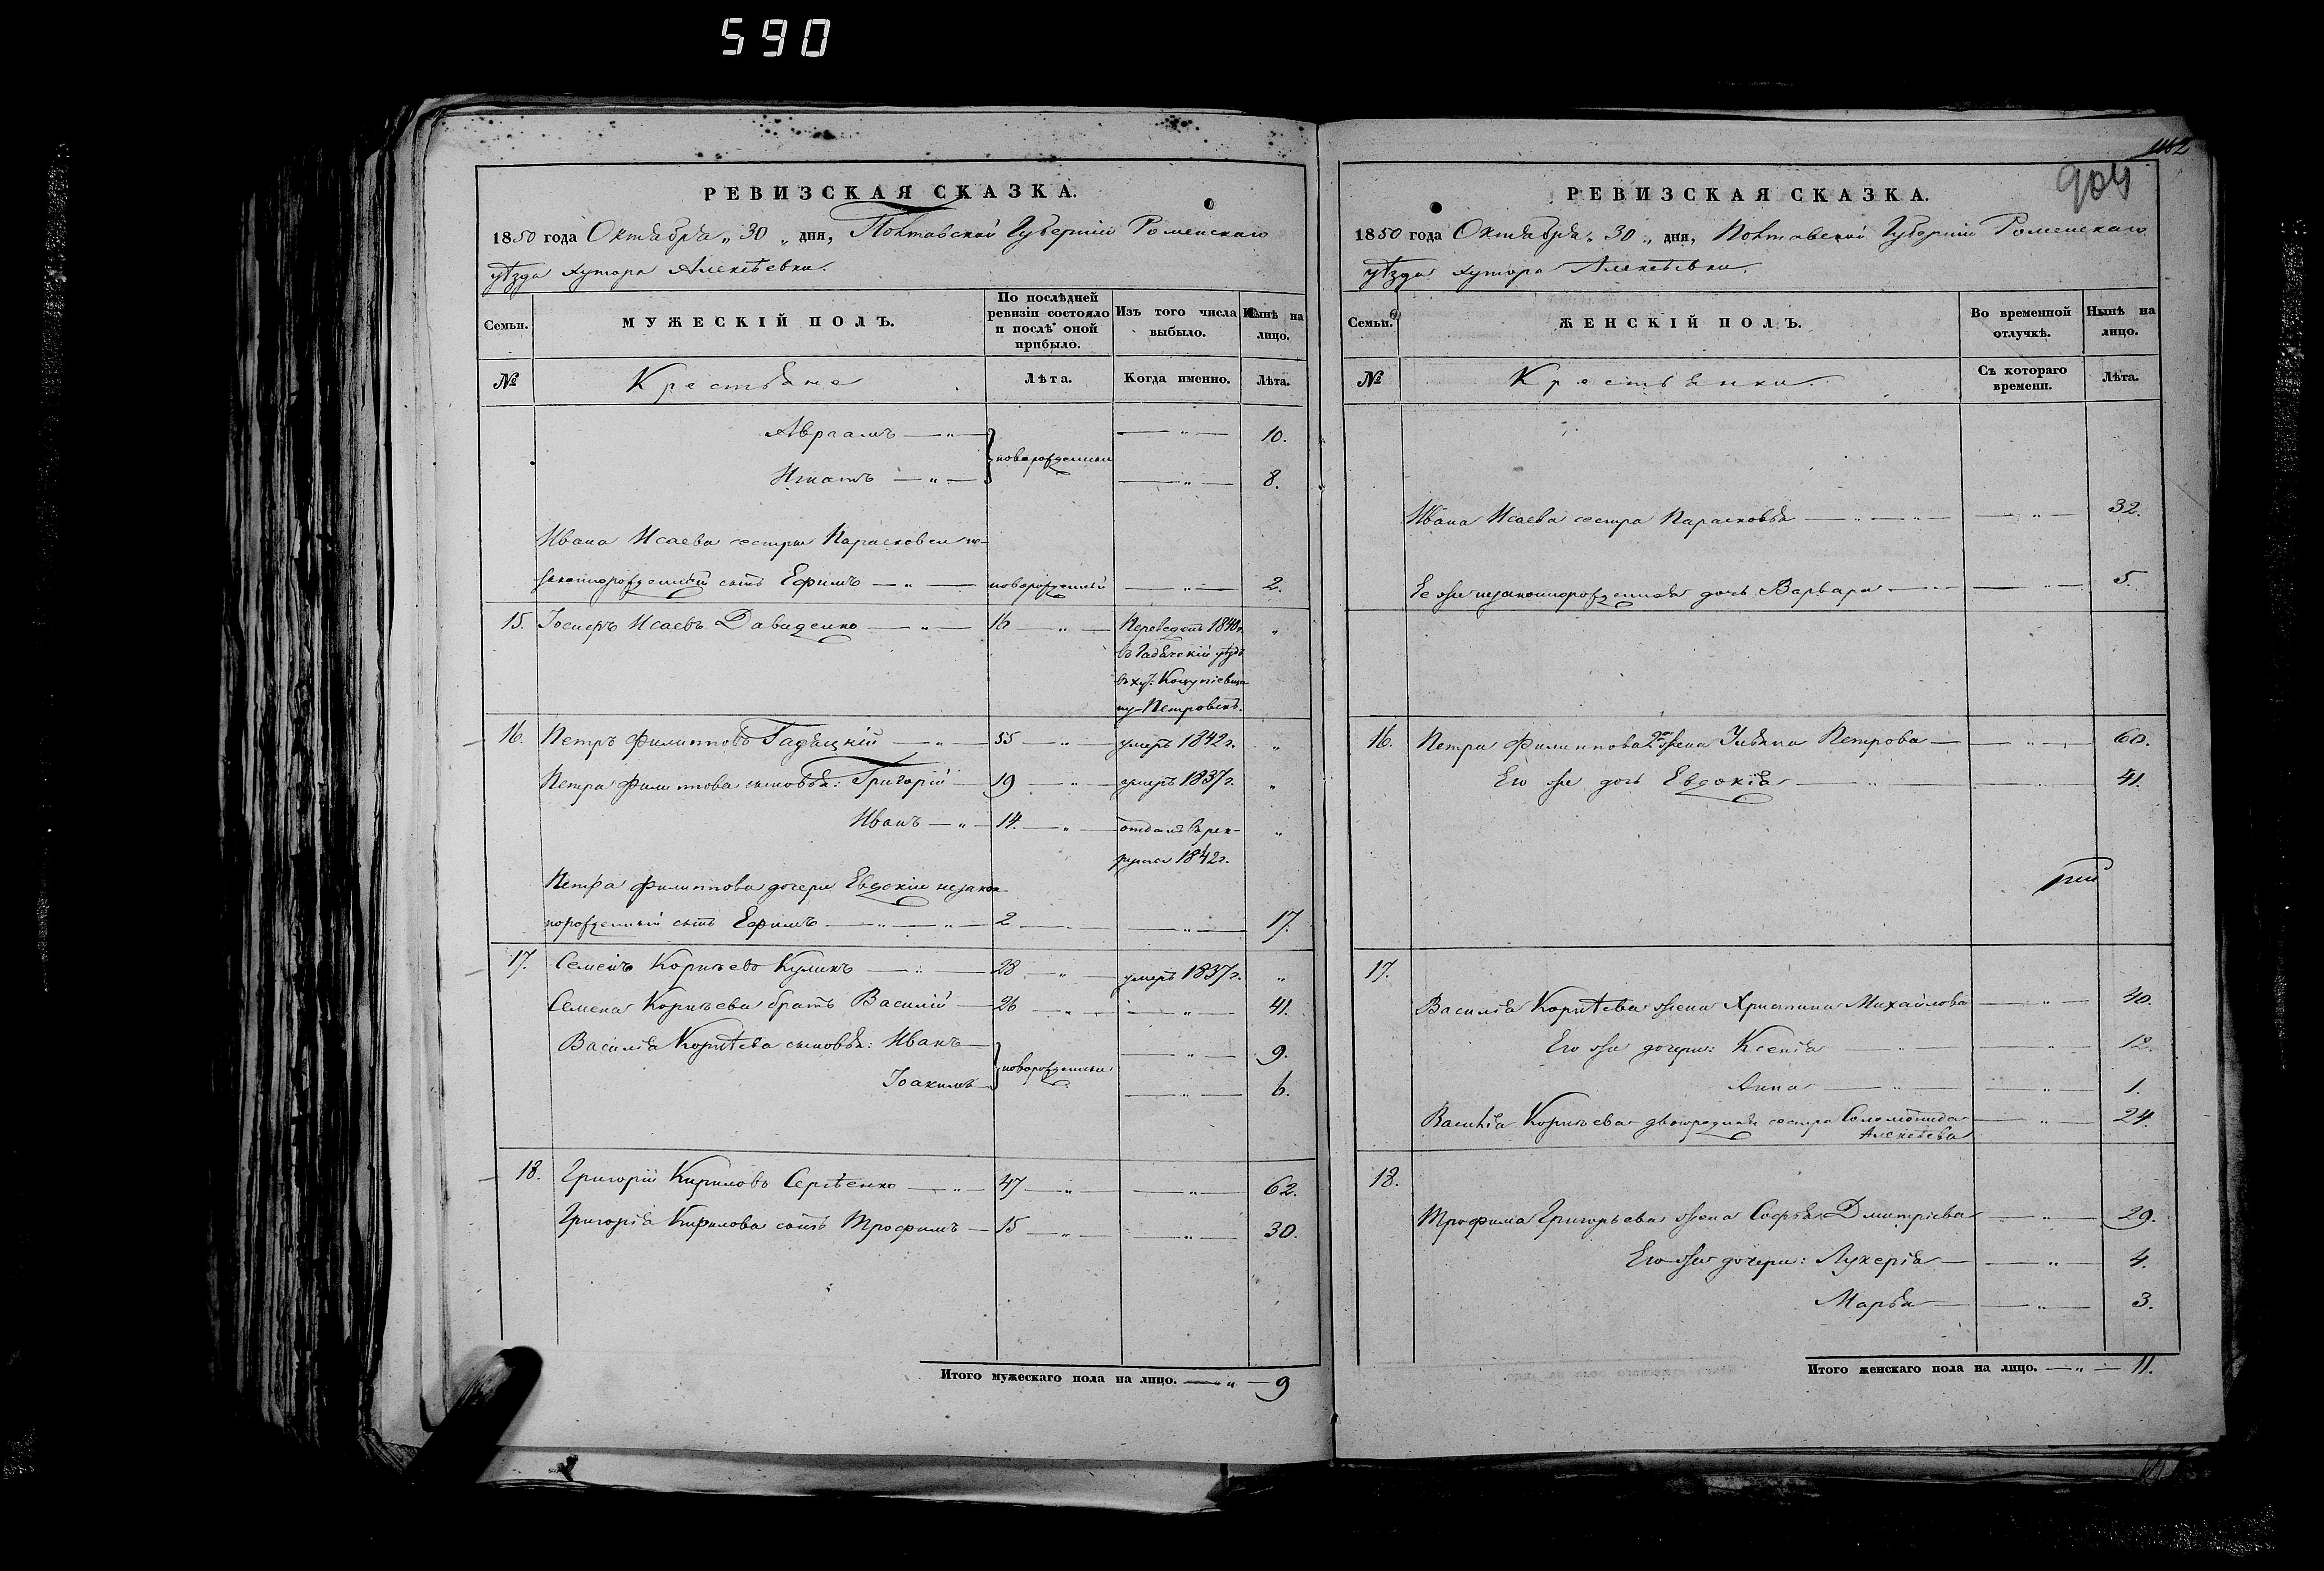 590
РЕВИЗСКАЯ СКАЗКА.
1850 года Октября „ 30 „ дня, Полтавской Губерніи Роменскаго
уѣзда хутора Алексѣевки.
Семьи.
МУЖЕСКІЙ ПОЛЪ.
По послѣдней ревизіи состояло и послѣ оной прибыло.
Изъ того числа выбыло.
Нынѣ на лицо.
№
Крестьяне
Лѣта.
Когда именно.
Лѣта.
Авраамъ — „ — — „ — 10.
новорожденные
Игнатъ — „ — — „ — 8.
Ивана Исаева сестры Парасковеи не-
законнорожденный сынъ Ефимъ — „ — новорожденный — „ — 2.
15. Іосифъ Исаевъ Давиденко — „ — 16 — „ — Переведенъ 1840 г. „
въ Гадячскій уѣздъ
въ хут:
Петровскъ.
16. Петръ Филипповъ Гадяцкій — „ — 55 — „ — умеръ 1842 г. „
Петра Филиппова сыновья: Григорій — 19 — „ — умеръ 1837 г. „
Иванъ — „ — 14. — „ — отданъ въ рек- „
руты 1842 г.
Петра Филиппова дочери Евдокіи незакон-
норожденный сынъ Ефимъ — „ — „ — 2 — — „ — 17.
17. Семенъ Корнѣевъ Куликъ — „ — 28 — „ — умеръ 1837 г. „
Семена Корнѣева братъ Василій — 26 — „ — — „ — 41.
Василія Корнѣева сыновья: Иванъ — — „ — 9.
новорожденные
Іоакимъ — — „ — 6.
18. Григорій Кириловъ Сергѣенко — „ — 47 — „ — — „ — 62.
Григорія Кирилова сынъ Трофимъ — 15 — „ — — „ — 30.
Итого мужескаго пола на лицо. — „ — 9
904
РЕВИЗСКАЯ СКАЗКА.
1850 года Октября „ 30 „ дня, Полтавской Губерніи Роменскаго
уѣзда хутора Алексѣевки.
Семьи.
ЖЕНСКІЙ ПОЛЪ.
Во временной отлучкѣ.
Нынѣ на лицо.
№
Крестьянки.
Съ котораго времени.
Лѣта.
Ивана Исаева сестра Парасковья — „ — „ — — „ — 32.
Ее же незаконнорожденная дочь Варвара — — „ — 5.
16. Петра Филиппова 2я жена Ульяна Петрова — — „ — 60.
Его же дочь Евдокія — „ — — „ — 41.
17.
Василія Корнѣева жена Христина Михайлова — „ — 40.
Его же дочери: Ксенія — „ — — „ — 12.
Анна — „ — — „ — 1.
Василія Корнѣева двоюродная сестра Соломонида — „ — 24.
Алексѣева
18.
Трофима Григорьева жена Софья Дмитріева — „ — 29.
Его же дочери: Лукерія — — „ — 4.
Марья — — „ — 3.
Итого женскаго пола на лицо. — „ — 11.